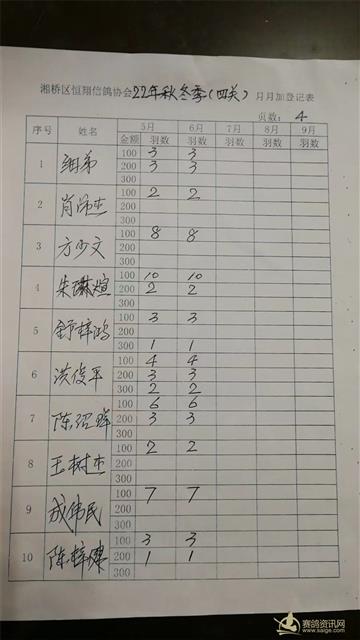 湘桥区恒翔信鸽协会22年秋冬季(四关)月月加登记表
页数: 4
序号 姓名 5月 6月 7月 8月 9月
金额 羽数 羽数 羽数 羽数 羽数
1 细弟 100 3 3
200 3 3
300
2 肖沛杰 100 2 2
200
300
3 方少文 100 8 8
200
300
4 朱琳煊 100 10 10
200 2 2
300
5 舒梓鸿 100 3 3
200
300 1 1
6 洪俊平 100 4 4
200 3 3
300 2 2
7 陈绍 100 6 6
200 3 3
300
8 王树杰 100 2 2
200
300
9 成伟民 100 7 7
200
300
10 陈梓 100 3 3
200 1 1
300
赛鸽资讯网
www.saige.com